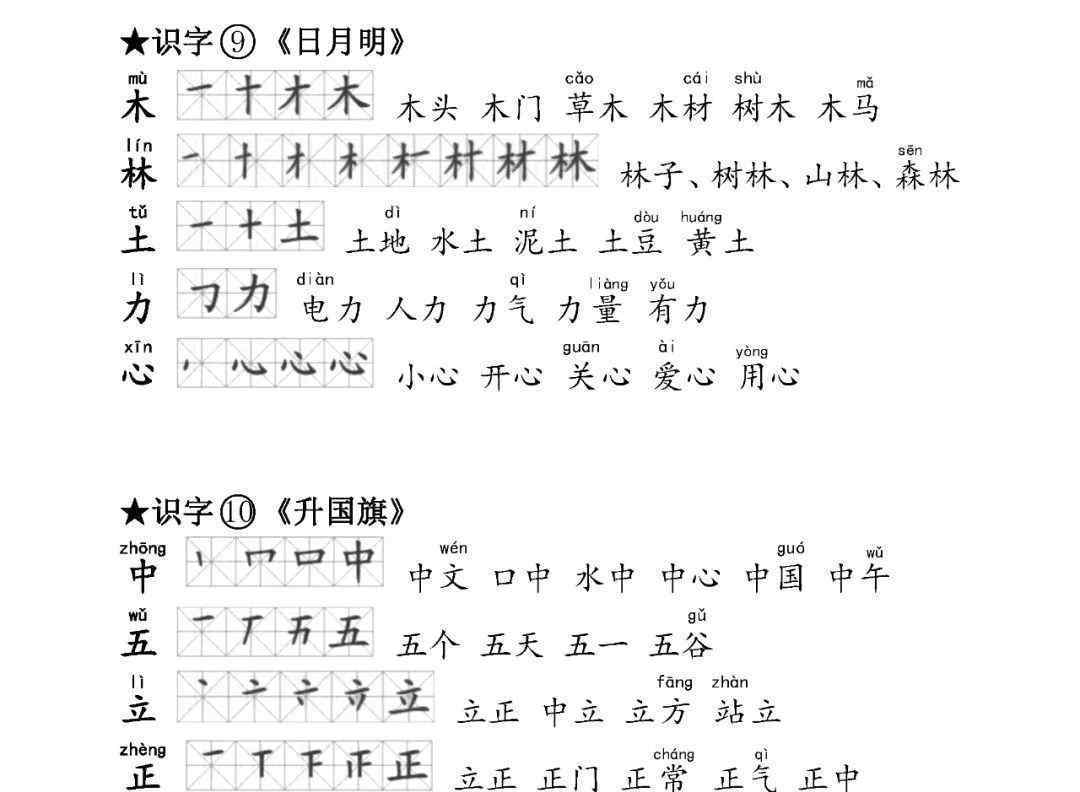 ★识字⑨《日月明》
mù
木 一 十 才 木 木头 木门 草(cǎo)木 木材(cái) 树(shù)木 木马(mǎ)
lín
林 林子、树林、山林、森(sēn)林
tǔ
土 一 十 土 土地(dì) 水土 泥(ní)土 土豆(dòu) 黄(huáng)土
lì
力 ㇆ 力 电(diàn)力 人力 力气(qì) 力量(liàng) 有(yǒu)力
xīn
心 小心 开心 关(guān)心 爱(ài)心 用(yòng)心
★识字⑩《升国旗》
zhōng
中 丶 冖 口 中 中文(wén) 口中 水中 中心 中国(guó) 中午(wǔ)
wǔ
五 一 丆 五 五个 五天 五一 五谷(gǔ)
lì
立 丶 亠 立 立正 中立 立方(fāng) 站(zhàn)立
zhèng
正 一 丅 下 正 立正 正门 正常(cháng) 正气(qì) 正中